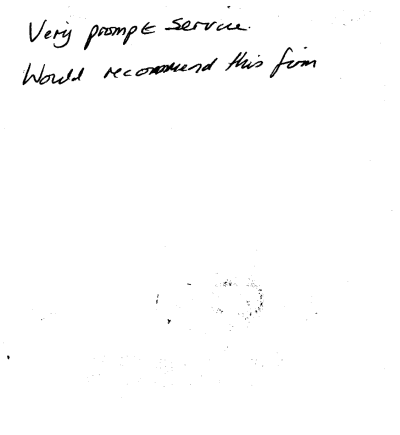 Very prompt service.
Would recommend this firm